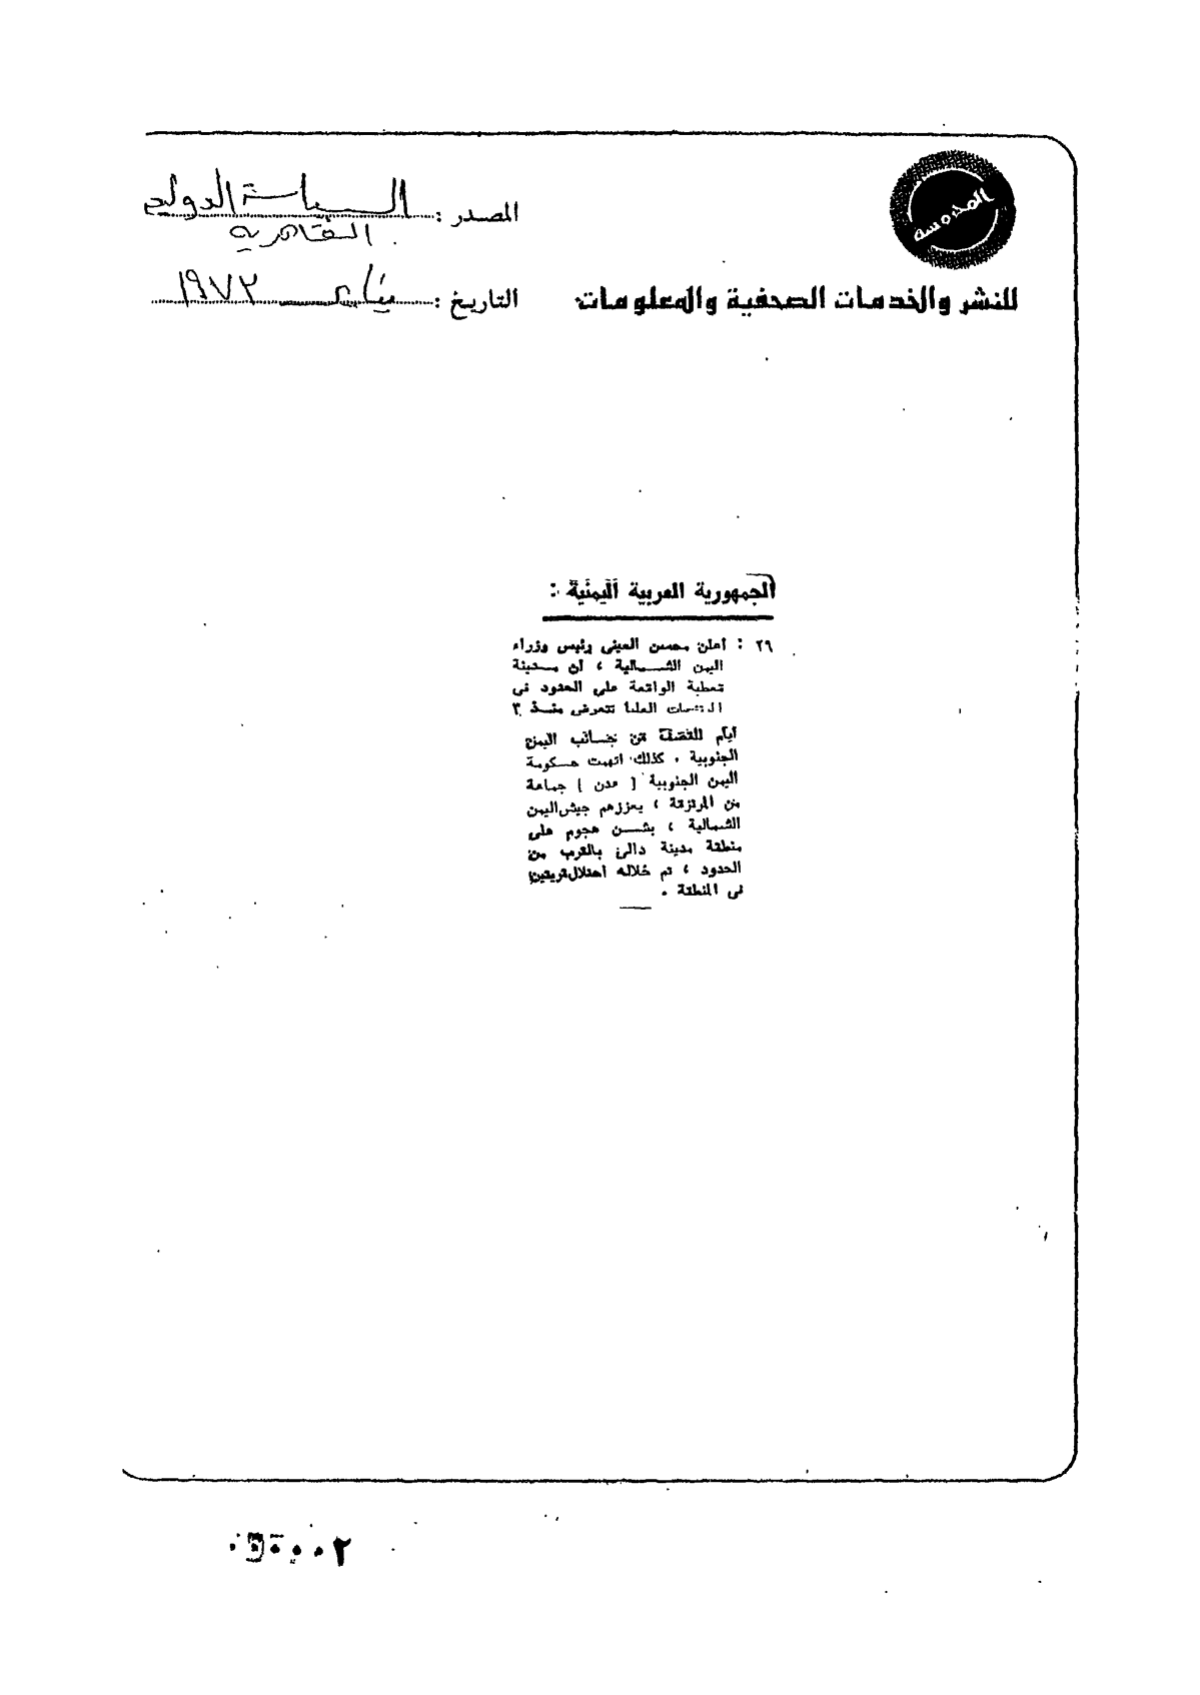 المحروسة
للنشر والخدمات الصحفية والمعلومات
المصدر : السياسة الدولية
القاهرية
التاريخ : يناير ١٩٧٢
الجمهورية العربية اليمنية :
٢٩ : أعلن محسن العينى رئيس وزراء
اليمن الشمالية ، أن مدينة
قعطبة الواقعة على الحدود فى
العليا تتعرض منذ ٣
أيام للقصف من جانب اليمن
الجنوبية . كذلك اتهمت حكومة
اليمن الجنوبية [ عدن ] جماعة
من المرتزقة ، يعززهم جيش اليمن
الشمالية ، بشن هجوم على
منطقة مدينة دالئ بالقرب من
الحدود ، تم خلاله احتلال قريتين
فى المنطقة .